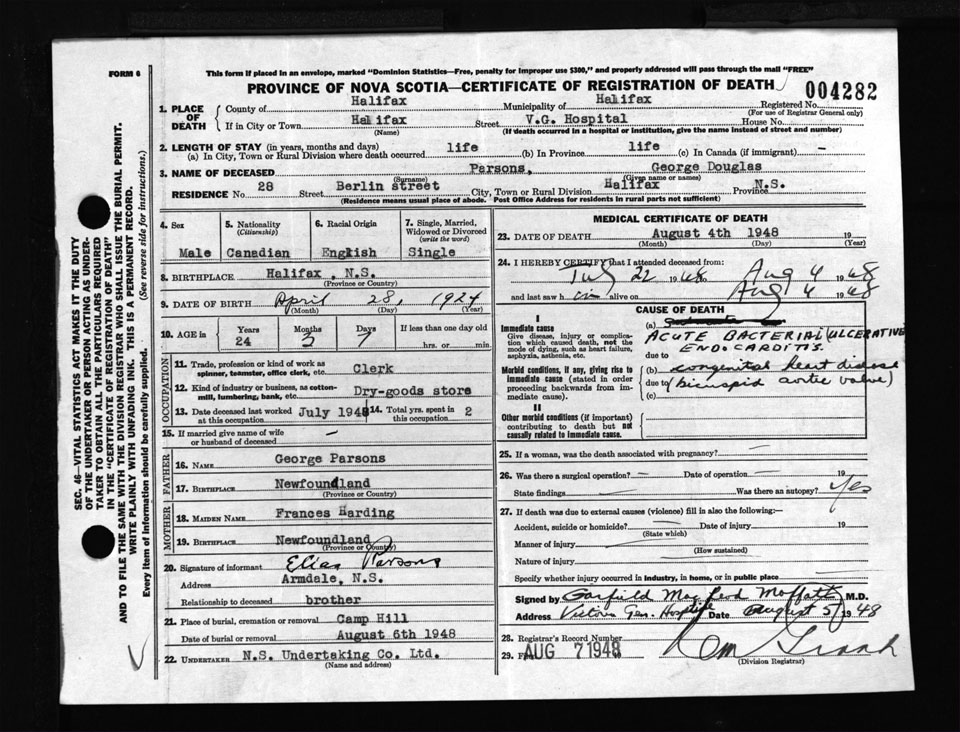 FORM 6
This form if placed in an envelope, marked "Dominion Statistics—Free, penalty for improper use $300," and properly addressed will pass through the mail "FREE"
PROVINCE OF NOVA SCOTIA—CERTIFICATE OF REGISTRATION OF DEATH
004282
SEC. 46—VITAL STATISTICS ACT MAKES IT THE DUTY
OF THE UNDERTAKER OR PERSON ACTING AS UNDER-
TAKER TO OBTAIN ALL THE PARTICULARS REQUIRED
IN THE "CERTIFICATE OF REGISTRATION OF DEATH"
AND TO FILE THE SAME WITH THE DIVISION REGISTRAR WHO SHALL ISSUE THE BURIAL PERMIT.
WRITE PLAINLY WITH UNFADING INK. THIS IS A PERMANENT RECORD.
Every item of Information should be carefully supplied. (See reverse side for instructions.)
1. PLACE OF DEATH
County of Halifax Municipality of Halifax Registered No.
(For use of Registrar General only)
If in City or Town Halifax Street V.G. Hospital House No.
(Name) (If death occurred in a hospital or institution, give the name instead of street and number)
2. LENGTH OF STAY (in years, months and days)
(a) In City, Town or Rural Division where death occurred life (b) In Province life (c) In Canada (if immigrant) —
3. NAME OF DECEASED Parsons, George Douglas
(Surname) (Given name or names)
RESIDENCE No 28 Street Berlin street City, Town or Rural Division Halifax Province N.S.
(Residence means usual place of abode. Post Office Address for residents in rural parts not sufficient)
4. Sex Male
5. Nationality (Citizenship) Canadian
6. Racial Origin English
7. Single, Married, Widowed or Divorced (write the word) Single
8. BIRTHPLACE Halifax, N.S.
(Province or Country)
9. DATE OF BIRTH April 28, 1924
(Month) (Day) (Year)
10. AGE in Years Months Days If less than one day old
24 3 7 hrs. or min.
OCCUPATION
11. Trade, profession or kind of work as spinner, teamster, office clerk, etc. Clerk
12. Kind of industry or business, as cotton-mill, lumbering, bank, etc. Dry-goods store
13. Date deceased last worked at this occupation July 1948 14. Total yrs. spent in this occupation 2
15. If married give name of wife or husband of deceased —
FATHER
16. NAME George Parsons
17. BIRTHPLACE Newfoundland
(Province or Country)
MOTHER
18. MAIDEN NAME Frances Harding
19. BIRTHPLACE Newfoundland
(Province or Country)
20. Signature of informant Elias Parsons
Address Armdale, N.S.
Relationship to deceased brother
21. Place of burial, cremation or removal Camp Hill
Date of burial or removal August 6th 1948
22. UNDERTAKER N.S. Undertaking Co. Ltd.
(Name and address)
MEDICAL CERTIFICATE OF DEATH
23. DATE OF DEATH August 4th 1948 19
(Month) (Day) (Year)
24. I HEREBY CERTIFY that I attended deceased from:
July 22 1948 Aug 4 1948
and last saw him alive on Aug 4 1948
CAUSE OF DEATH
I
Immediate cause
Give disease, injury or complication which caused death, not the mode of dying, such as heart failure, asphyxia, asthenia, etc.
(a) ACUTE BACTERIAL ULCERATIVE ENDOCARDITIS.
due to
Morbid conditions, if any, giving rise to immediate cause (stated in order proceeding backwards from immediate cause).
(b) congenital heart disease
due to (bicuspid aortic valve)
(c)
II
Other morbid conditions (if important) contributing to death but not causally related to immediate cause.
25. If a woman, was the death associated with pregnancy? —
26. Was there a surgical operation? — Date of operation — 19
State findings — Was there an autopsy? Yes
27. If death was due to external causes (violence) fill in also the following:—
Accident, suicide or homicide? Date of injury 19
(State which)
Manner of injury
(How sustained)
Nature of injury
Specify whether injury occurred in industry, in home, or in public place
Signed by Garfield MacLeod Moffatt M.D.
Address Victoria Gen. Hospital Date August 5 1948
28. Registrar's Record Number
29. AUG 7 1948
(Division Registrar)